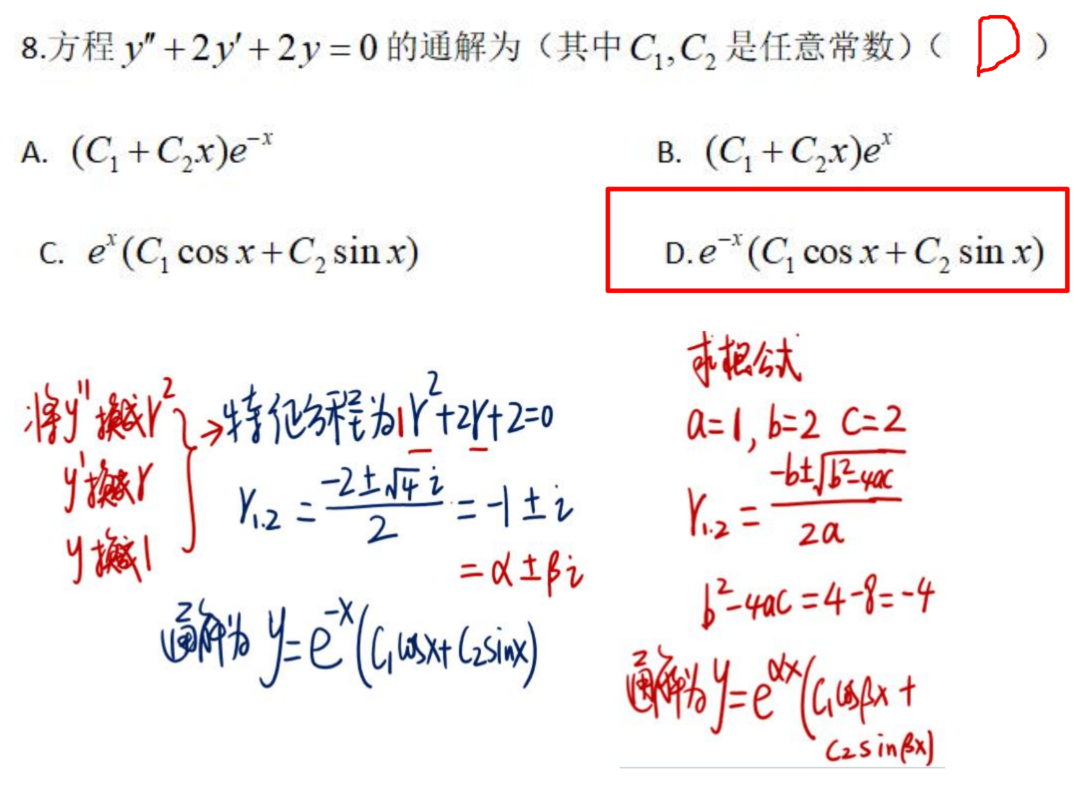 8.方程 y″+2y′+2y=0 的通解为（其中 C₁,C₂ 是任意常数）( D )
A. (C₁+C₂x)e⁻ˣ
B. (C₁+C₂x)eˣ
C. eˣ(C₁ cos x+C₂ sin x)
D. e⁻ˣ(C₁ cos x+C₂ sin x)
将y″换成r²
y′换成r
y换成1
→特征方程为1r²+2r+2=0
r₁.₂ = (-2±√4 i)/2 = -1±i
= α±βi
通解为 y=e⁻ˣ(C₁cosx+C₂sinx)
求根公式
a=1, b=2 c=2
r₁.₂ = (-b±√(b²-4ac))/2a
b²-4ac=4-8=-4
通解为y=e^αx(C₁cosβx+
C₂sinβx)